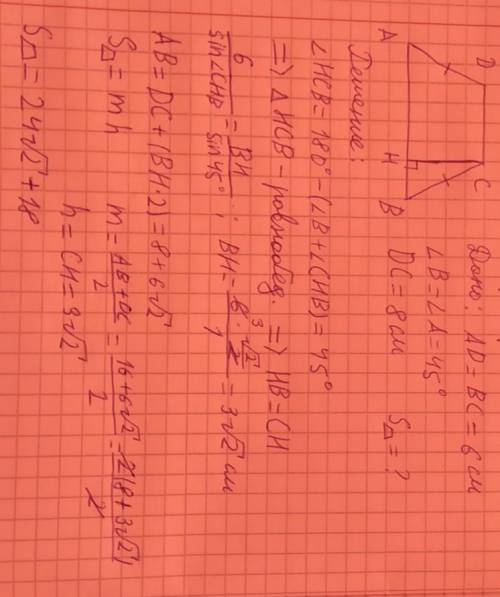 Дано: AD = BC = 6 см
∠B = ∠A = 45°
DC = 8 см S△ = ?
D C
A H B
Решение:
∠HCB = 180° - (∠B + ∠CHB) = 45°
=> △HCB - равнобед. => HB = CH
6/sin∠CHB = BH/sin45° ; BH = 6·√2/2 = 3√2 см
3
1
AB = DC + (BH·2) = 8 + 6√2
S△ = mh m = (AB + DC)/2 = (16 + 6√2)/2 = 2(8 + 3√2)/2
h = CH = 3√2
S△ = 24√2 + 18